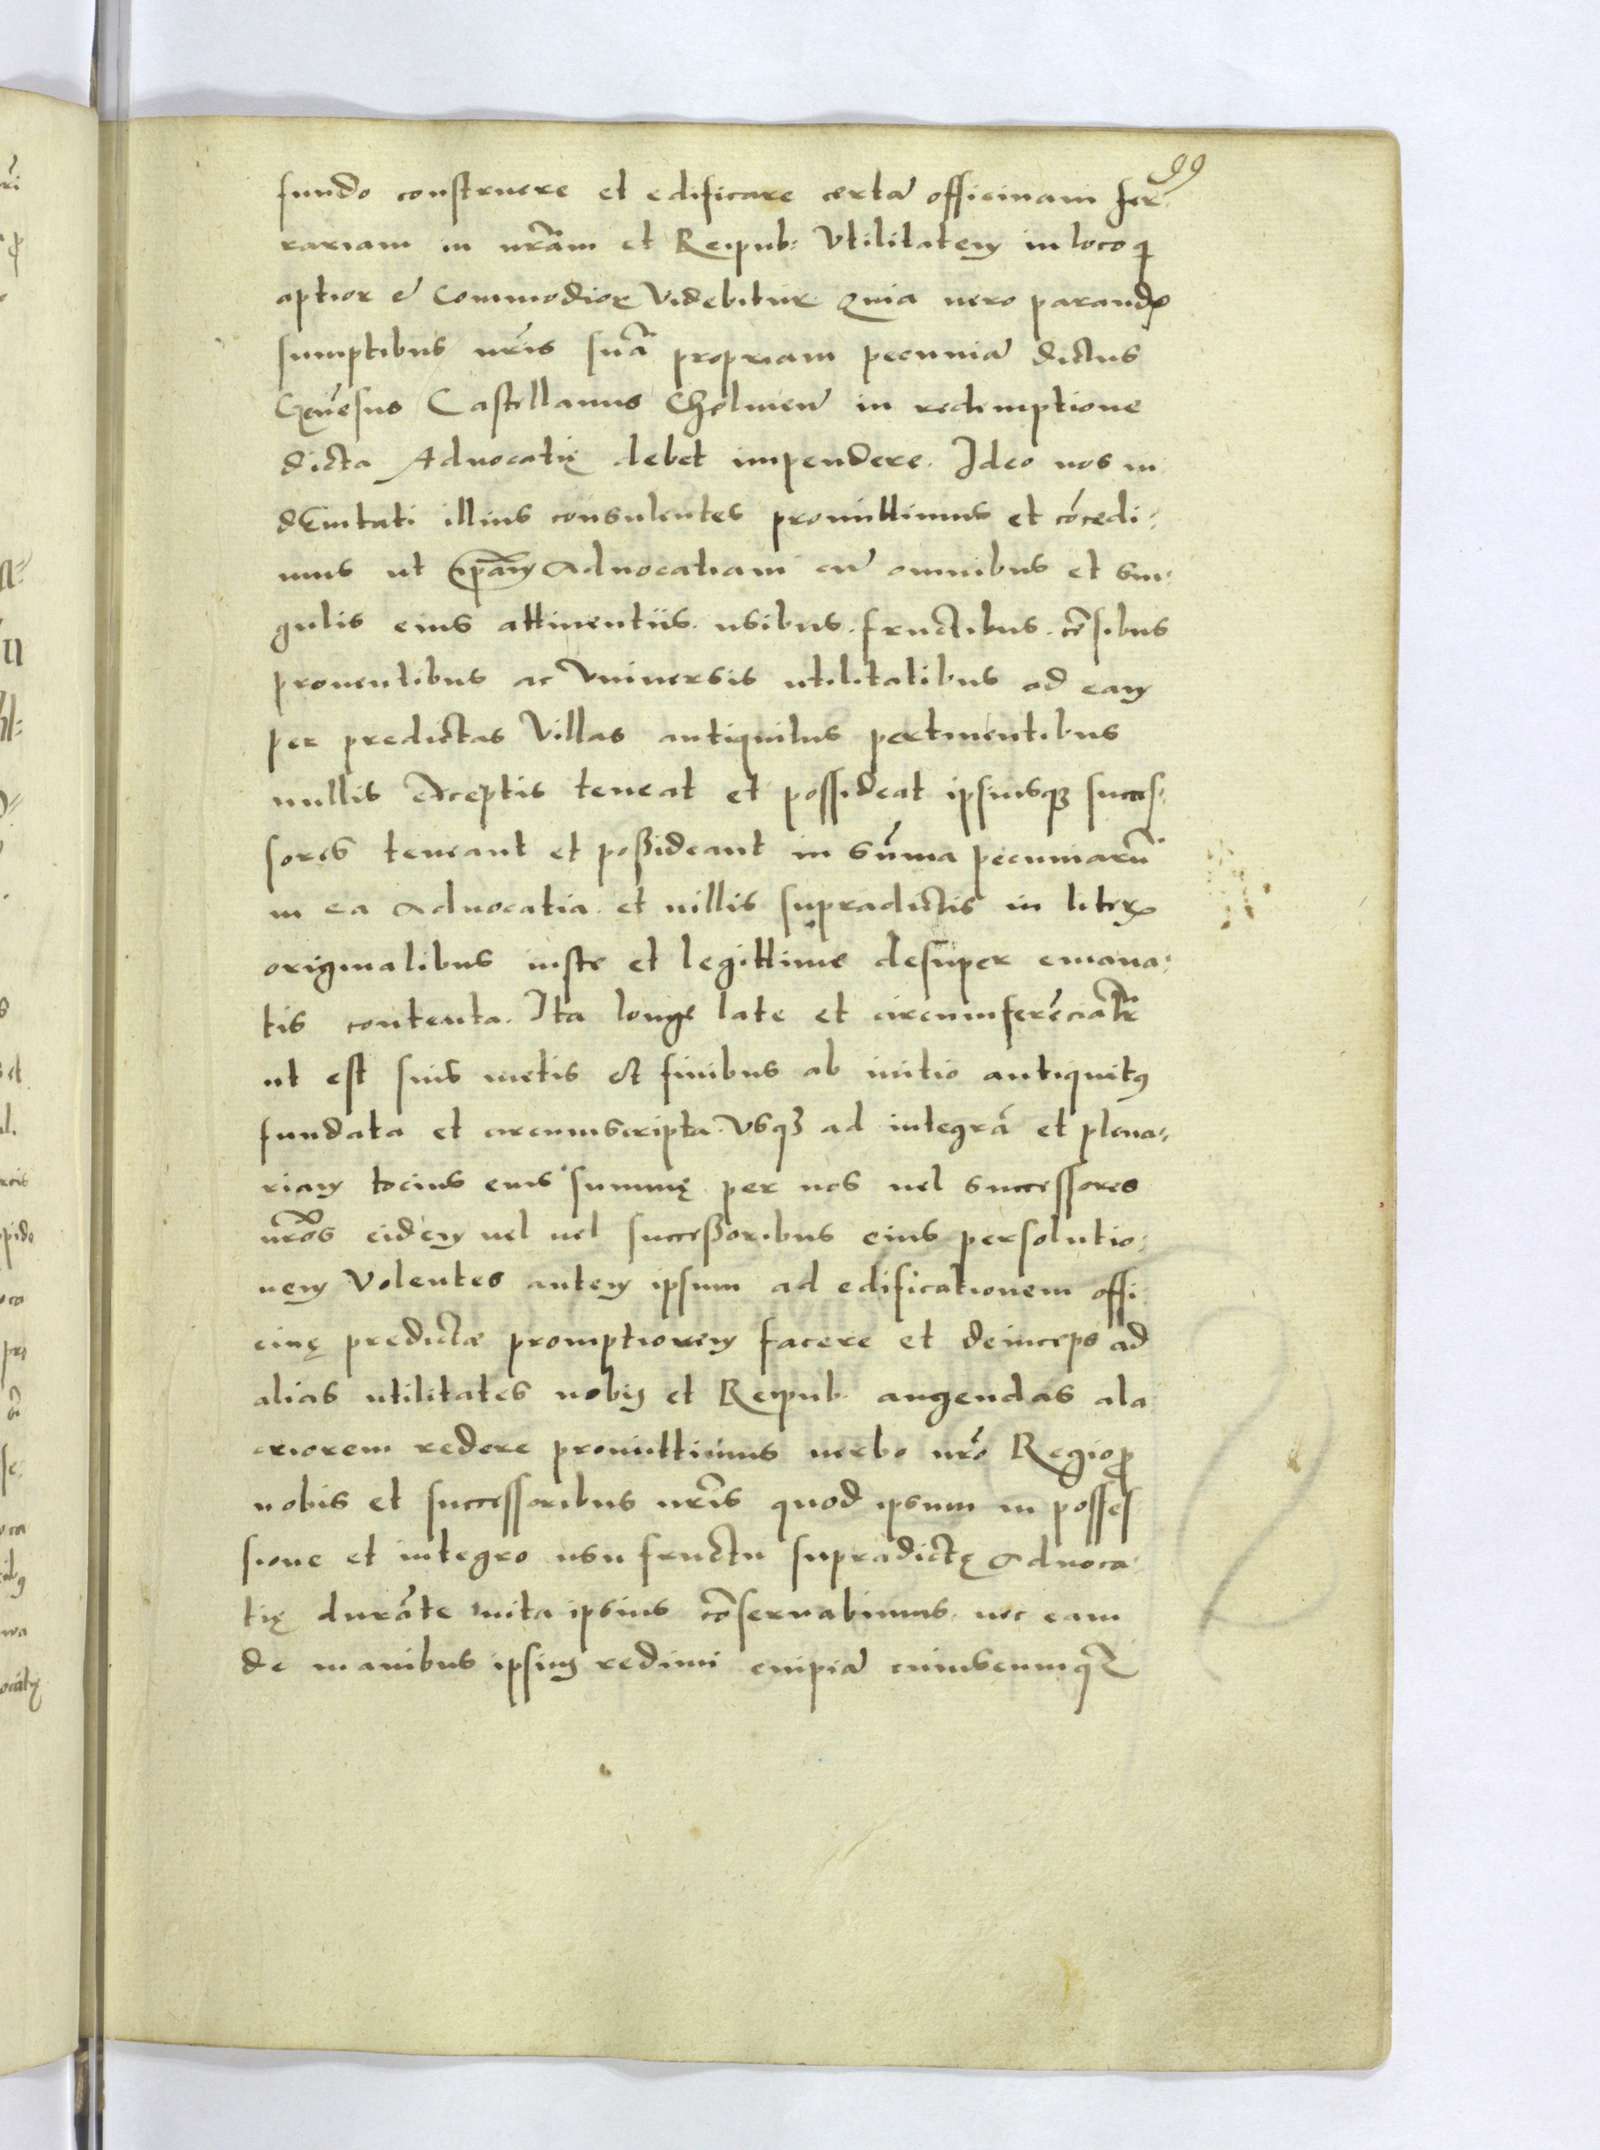 99
fundo construere et edificare certā officinam fer
rariam in nrām et Reipub: Vtilitatem in loco q
aptior et Commodior Videbitur Quia uero parandis
sumptibus nrīs suā propriam pecuniā dictus
Castellanus Chelmeñ in redemptione
dicta Aduocatię debet impendere. Ideo nos in
demnitati illius consulentes promittimus et cōcedi:
mus ut ipsam Aduocatiam cū omnibus et sin:
gulis eius attinentiis. usibus. fructibus. cēsibus
prouentibus ac Vniuersis utilitatibus ad eam
per predictas Villas antiquitus pertinentibus
nullis exceptis teneat et possideat ipsiusq3 succes:
sores teneant et poßideant in sūma pecuniarū
in ea Aduocatia. et uillis supradictis in literis
originalibus iuste et legittime desuper emana:
tis contenta. Ita longe late et circumferēcialr
ut est suis metis et finibus ab initio antiquitus
fundata et circumscripta. Vsq3 ad integrā et plena:
riam tocius eius summę per nos uel successores
nrōs eidem uel uel succeßoribus eius persolutio:
nem Volentes autem ipsum ad edificationem offi
cinę predictæ promptiorem facere et deinceps ad
alias utilitates nobis et Reipub. augendas ala
criorem redere promittimus uerbo nrō Regio pro
nobis et successoribus nrīs quod ipsum in posses
sione et integro usufructu supradictę Aduoca:
tię durāte uita ipsius cōseruabimus. nec eam
de manibus ipsius redimi cuipiā cuiuscumq3